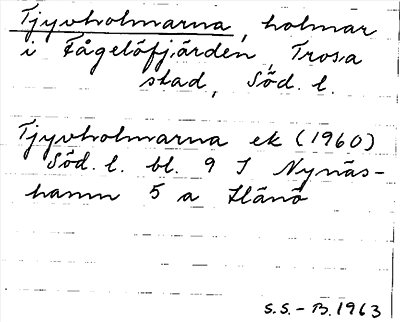 Tjyvholmarna, holmar
i Fågelöfjärden, Trosa
stad, Söd. l.
Tjyvholmarna ek (1960)
Söd. l. bl. 9 I Nynäs-
hamn 5 a Hånö
S.S. - B. 1963